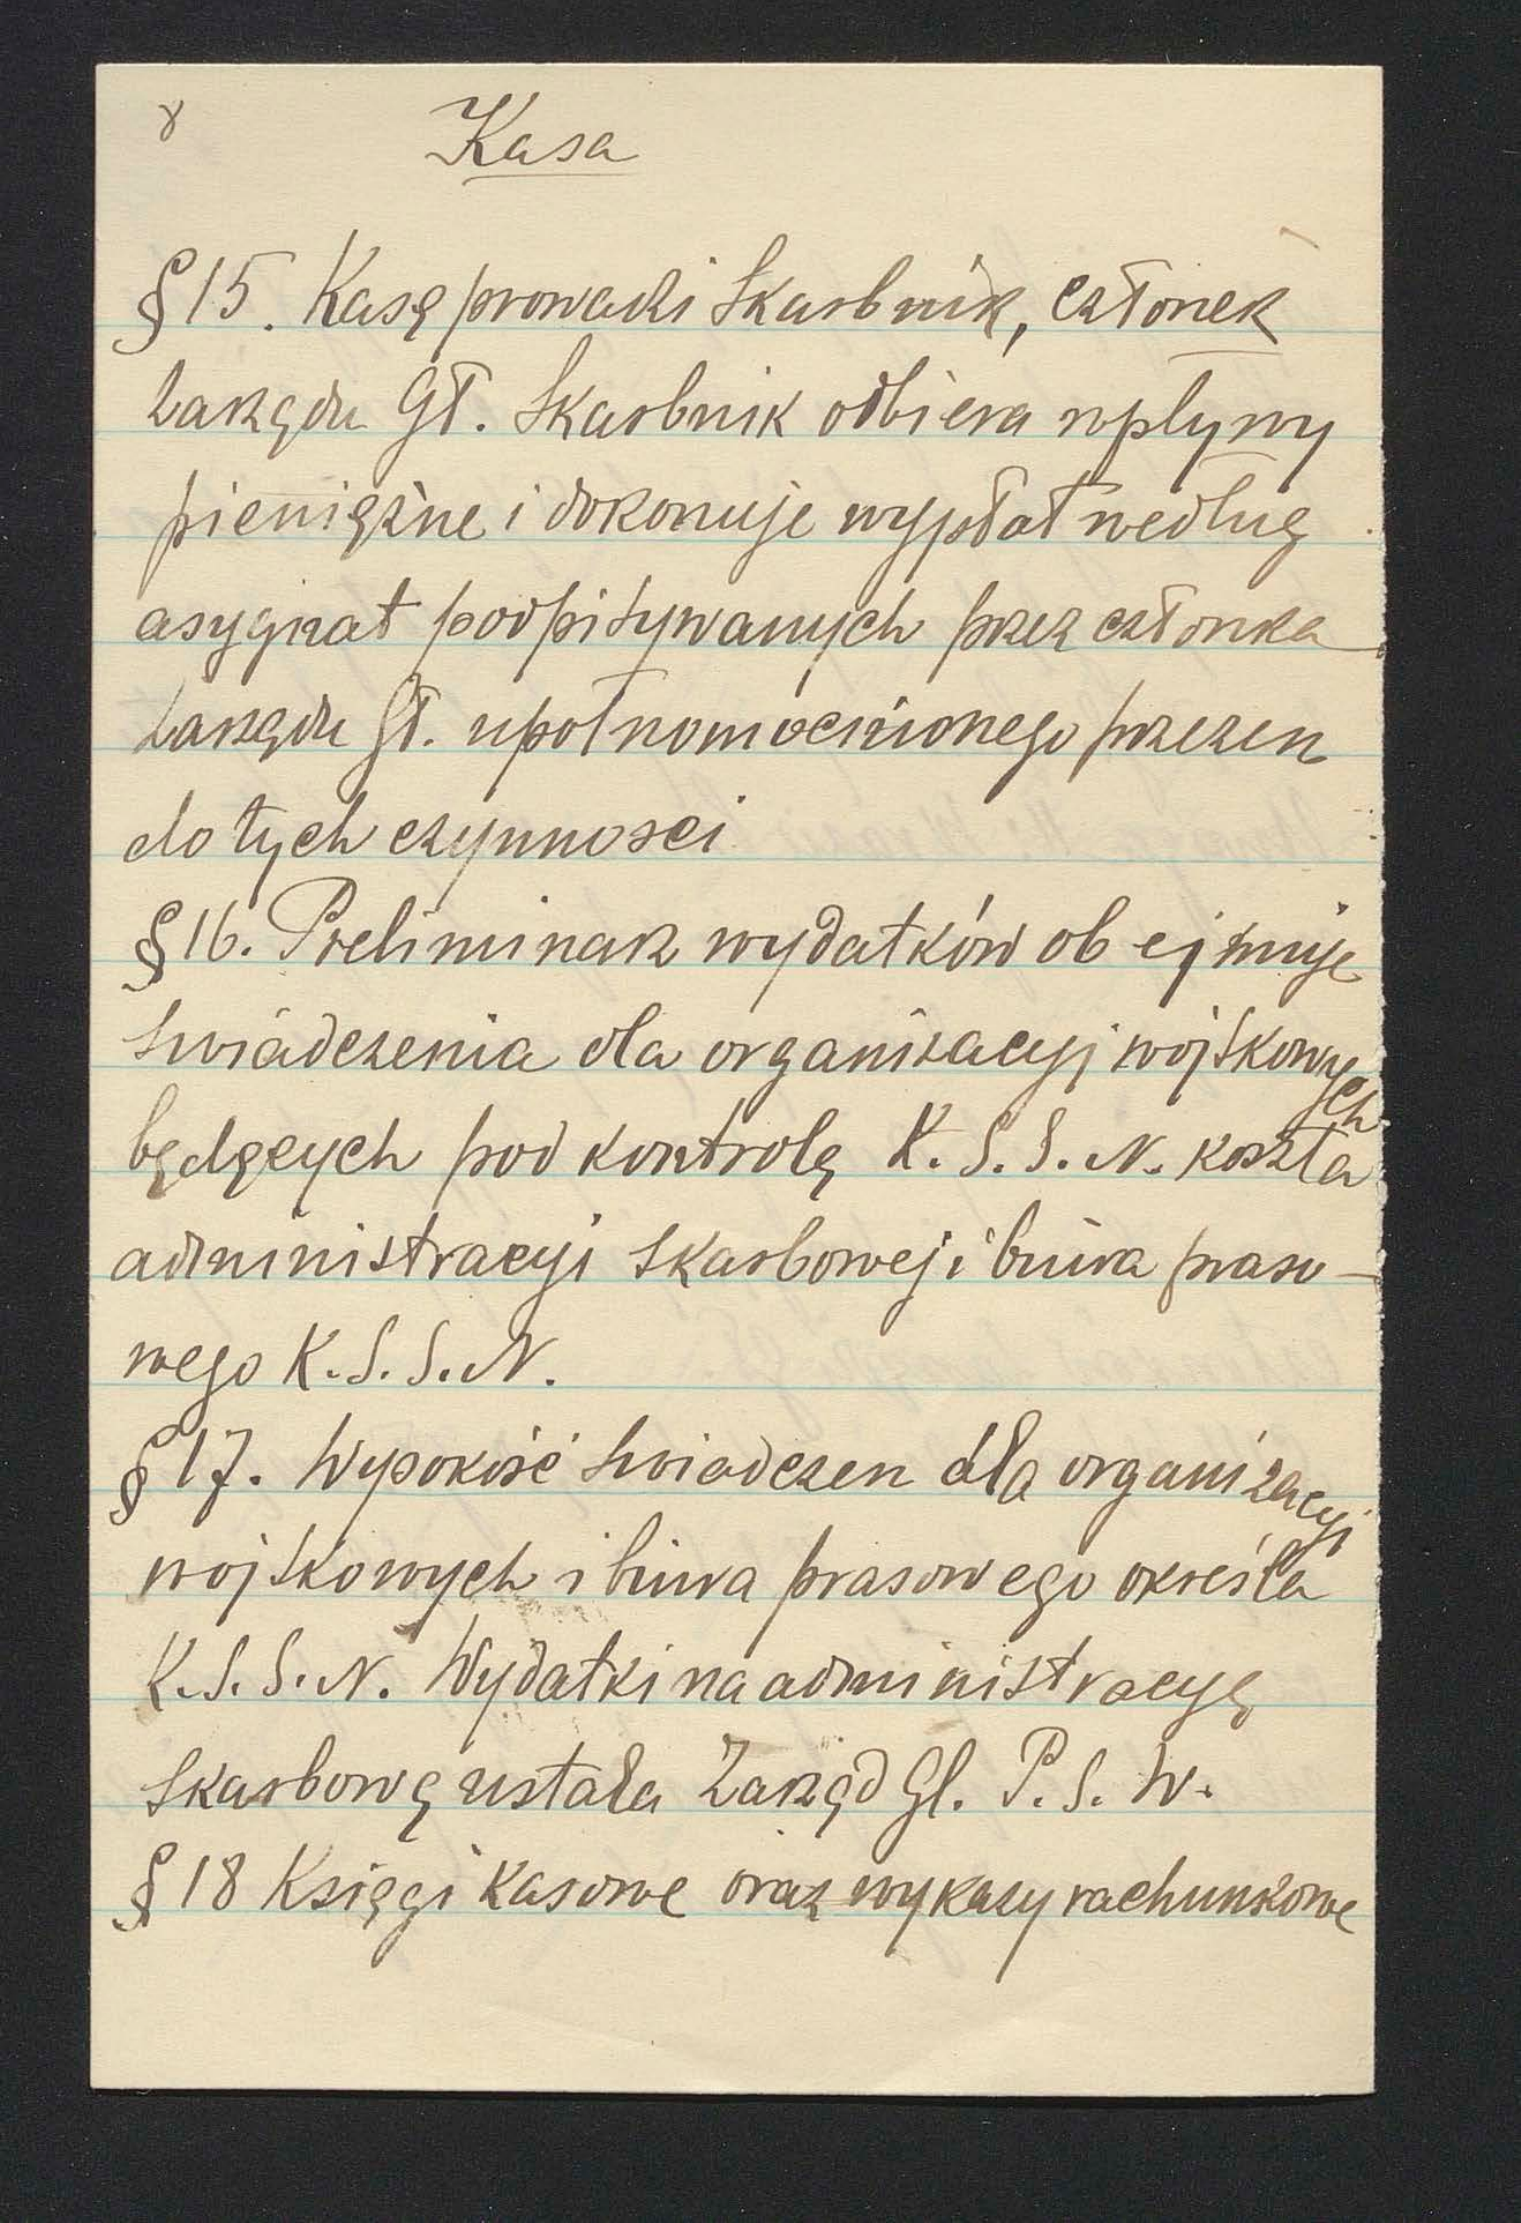 8
Kasa
§ 15. Kasę prowadzi skarbnik, członek
Zarządu Gł. Skarbnik odbiera wpływy
pieniężne i dokonuje wypłat według
asygnat podpisywanych przez członka
Zarządu Gł. upołnomocnionego przezen
do tych czynnosci
§ 16. Preliminarz wydatków obejmuje
swiadczenia dla organizacyj wojskowych
będących pod kontrolą K. S. S. N. koszta
administracyi skarbowej i biura praso-
wego K. S. S. N.
§ 17. Wysokość swiadczen dla organizacyj
wojskowych i biura prasowego określa
K. S. S. N. Wydatki na administracyę
skarbową ustala Zarząd Gł. P. S. W.
§ 18 Księgi kasowe oraz wykazy rachunkowe